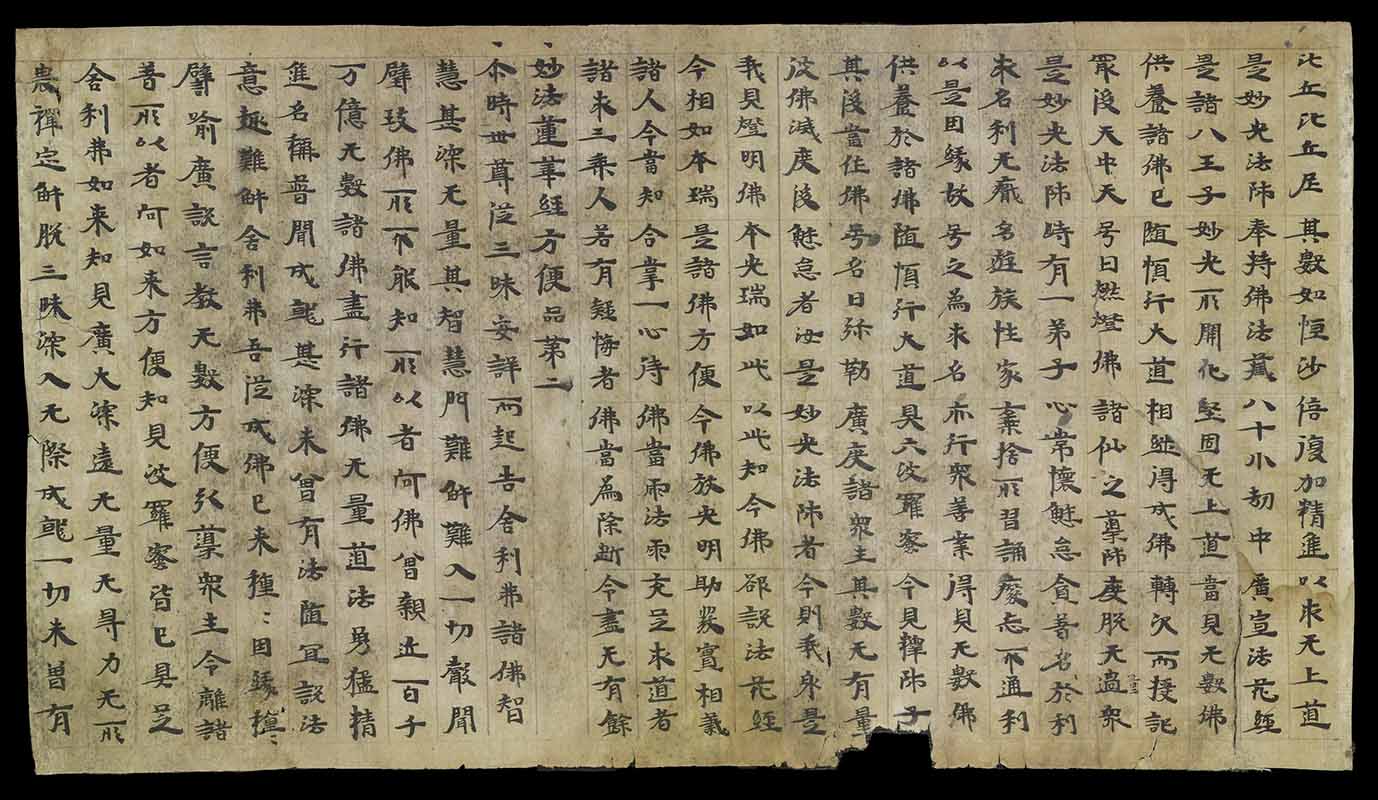 比丘比丘尼 其數如恒沙 倍復加精進 以求无上道
是妙光法師 奉持佛法藏 八十小劫中 廣宣法花經
是諸八王子 妙光所開化 堅固无上道 當見无數佛
供養諸佛已 随順行大道 相継得成佛 轉次而授記
冣後天中天 号曰燃燈佛 諸仙之䆃師 度脫无量衆
是妙光法師 時有一弟子 心常懷懈怠 貪著名於利
求名利无猒 多遊族姓家 棄捨所習誦 廢忘不通利
以是因縁故 号之為求名 亦行衆善業 得見无數佛
供養於諸佛 随順行大道 具六波羅蜜 今見釋師子
其後當作佛 号名曰弥勒 廣度諸衆生 其數无有量
彼佛滅度後 懈怠者汝是 妙光法師者 今則我身是
我見燈明佛 本光瑞如此 以此知今佛 欲說法花經
今相如本瑞 是諸佛方便 今佛放光明 助發實相義
諸人今當知 合掌一心待 佛當雨法雨 充足求道者
諸求三乘人 若有疑悔者 佛當為除斷 令盡无有餘
妙法蓮華經方便品第二
尒時世尊從三昧安詳而起告舍利弗諸佛智
慧甚深无量其智慧門難解難入一切聲聞
辟支佛所不能知所以者何佛曾親近百千
万億无數諸佛盡行諸佛无量道法勇猛精
進名稱普聞成就甚深未曾有法随冝說法
意趣難解舍利弗吾從成佛已来種〻因縁種〻
譬喻廣說言教无數方便引導衆生令離諸
著所以者何如来方便知見波羅蜜皆已具足
舍利弗如来知見廣大深遠无量无㝵力无所
畏禪定解脫三昧深入无際成就一切未曾有